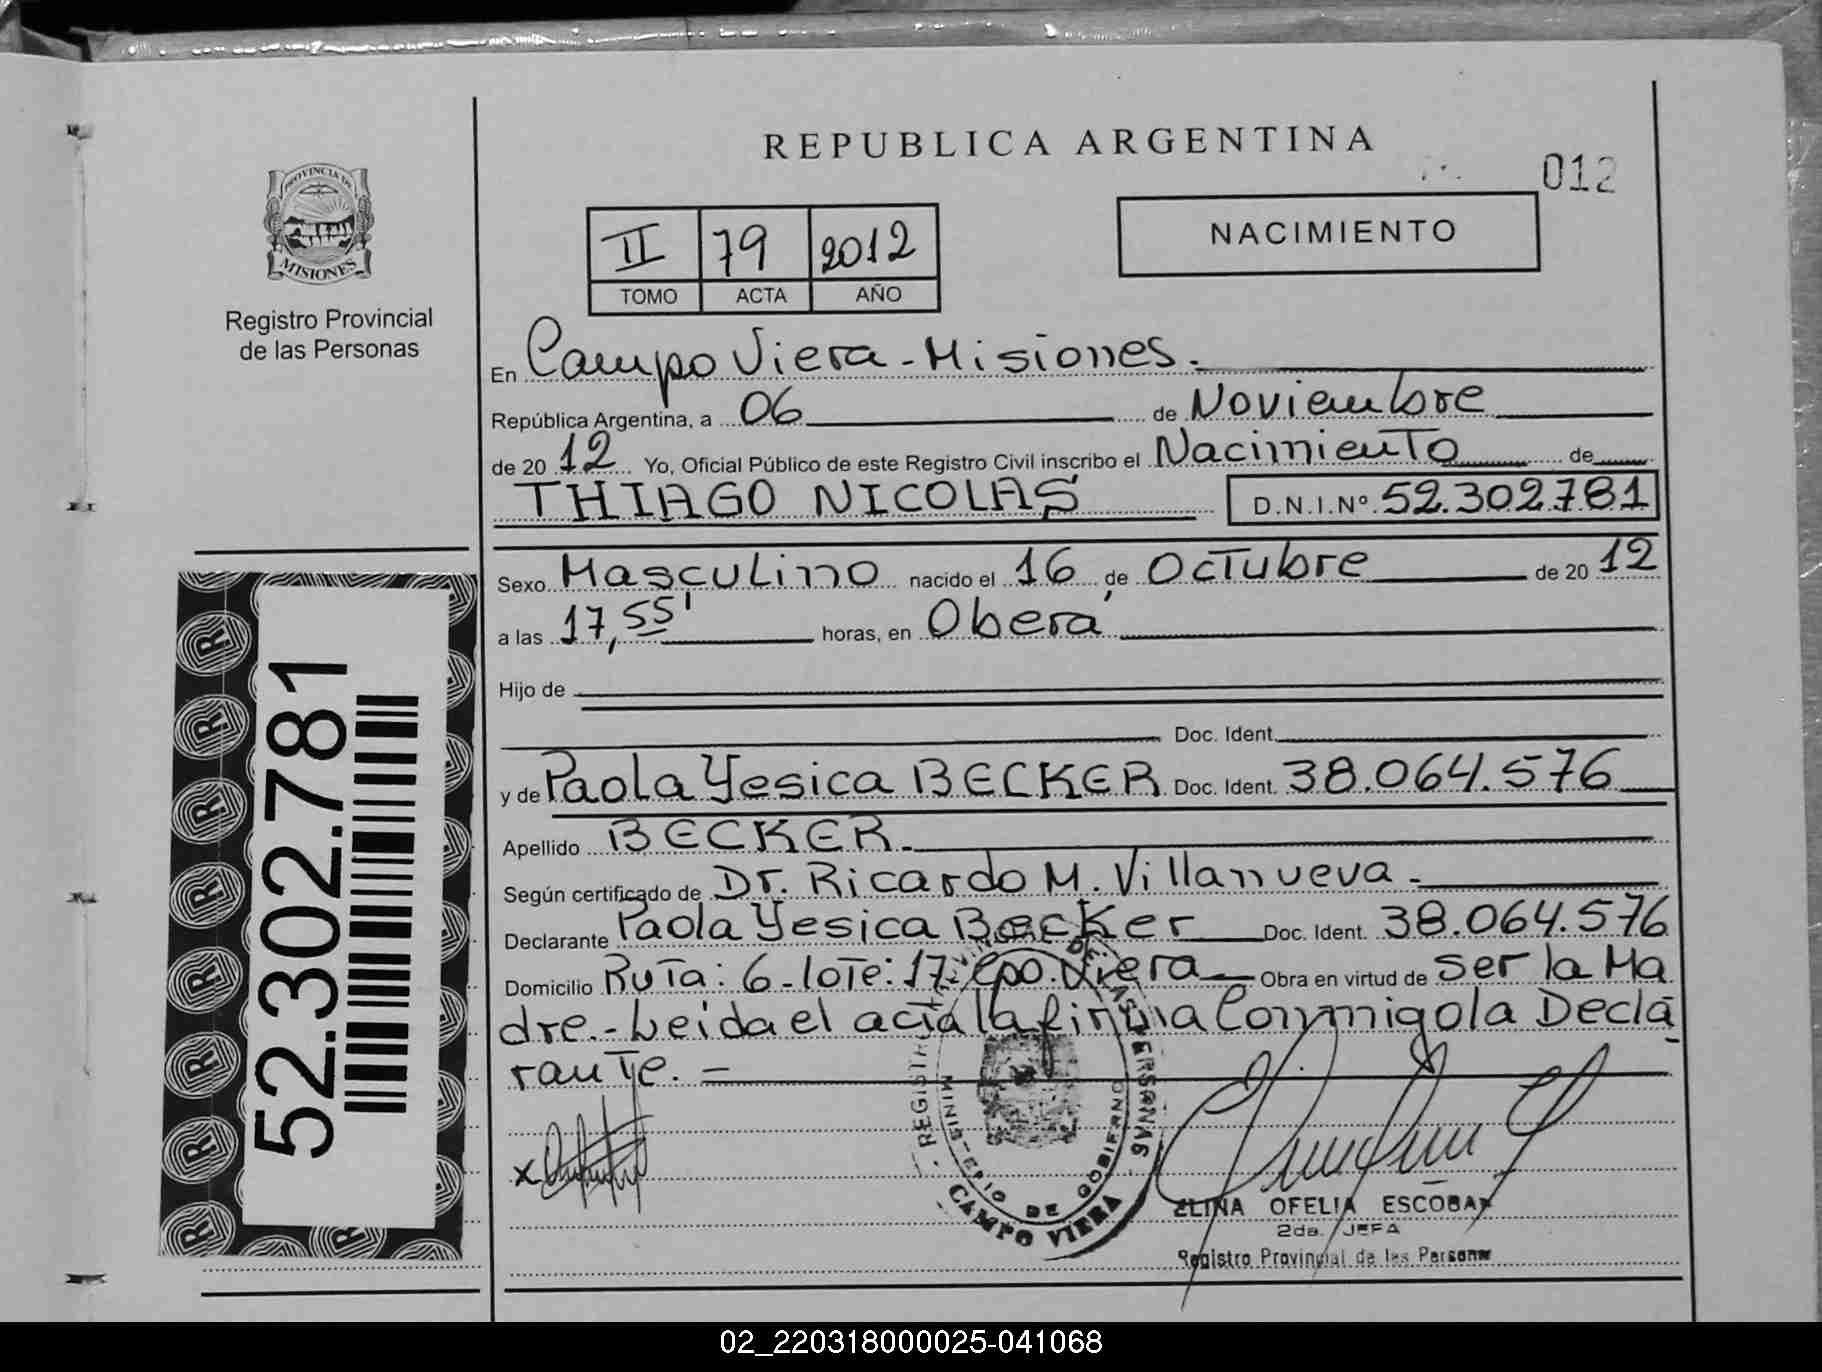 REPUBLICA ARGENTINA
012
NACIMIENTO
II 79 2012
TOMO ACTA AÑO
PROVINCIA DE
MISIONES
Registro Provincial
de las Personas
En Campo Viera - Misiones.
República Argentina, a 06 de Noviembre
de 20 12 Yo, Oficial Público de este Registro Civil inscribo el Nacimiento de
THIAGO NICOLAS D.N.I.Nº 52.302.781
Sexo Masculino nacido el 16 de Octubre de 20 12
a las 17,55' horas, en Oberá
Hijo de
Doc. Ident.
y de Paola Yesica BECKER Doc. Ident. 38.064.576
Apellido BECKER.
Según certificado de Dr. Ricardo M. Villanueva.-
Declarante Paola Yesica Becker Doc. Ident. 38.064.576
Domicilio Ruta: 6-lote: 17-cpo. Viera Obra en virtud de ser la Ma
dre.- Leida el acta la firma Conmigo la Decla
rante. -
52.302.781
REGISTRO DE LAS PERSONAS
MINISTERIO DE GOBIERNO
CAMPO VIERA
x
ELINA OFELIA ESCOBAR
2da. JEFA
Registro Provincial de las Personas
02_220318000025-041068